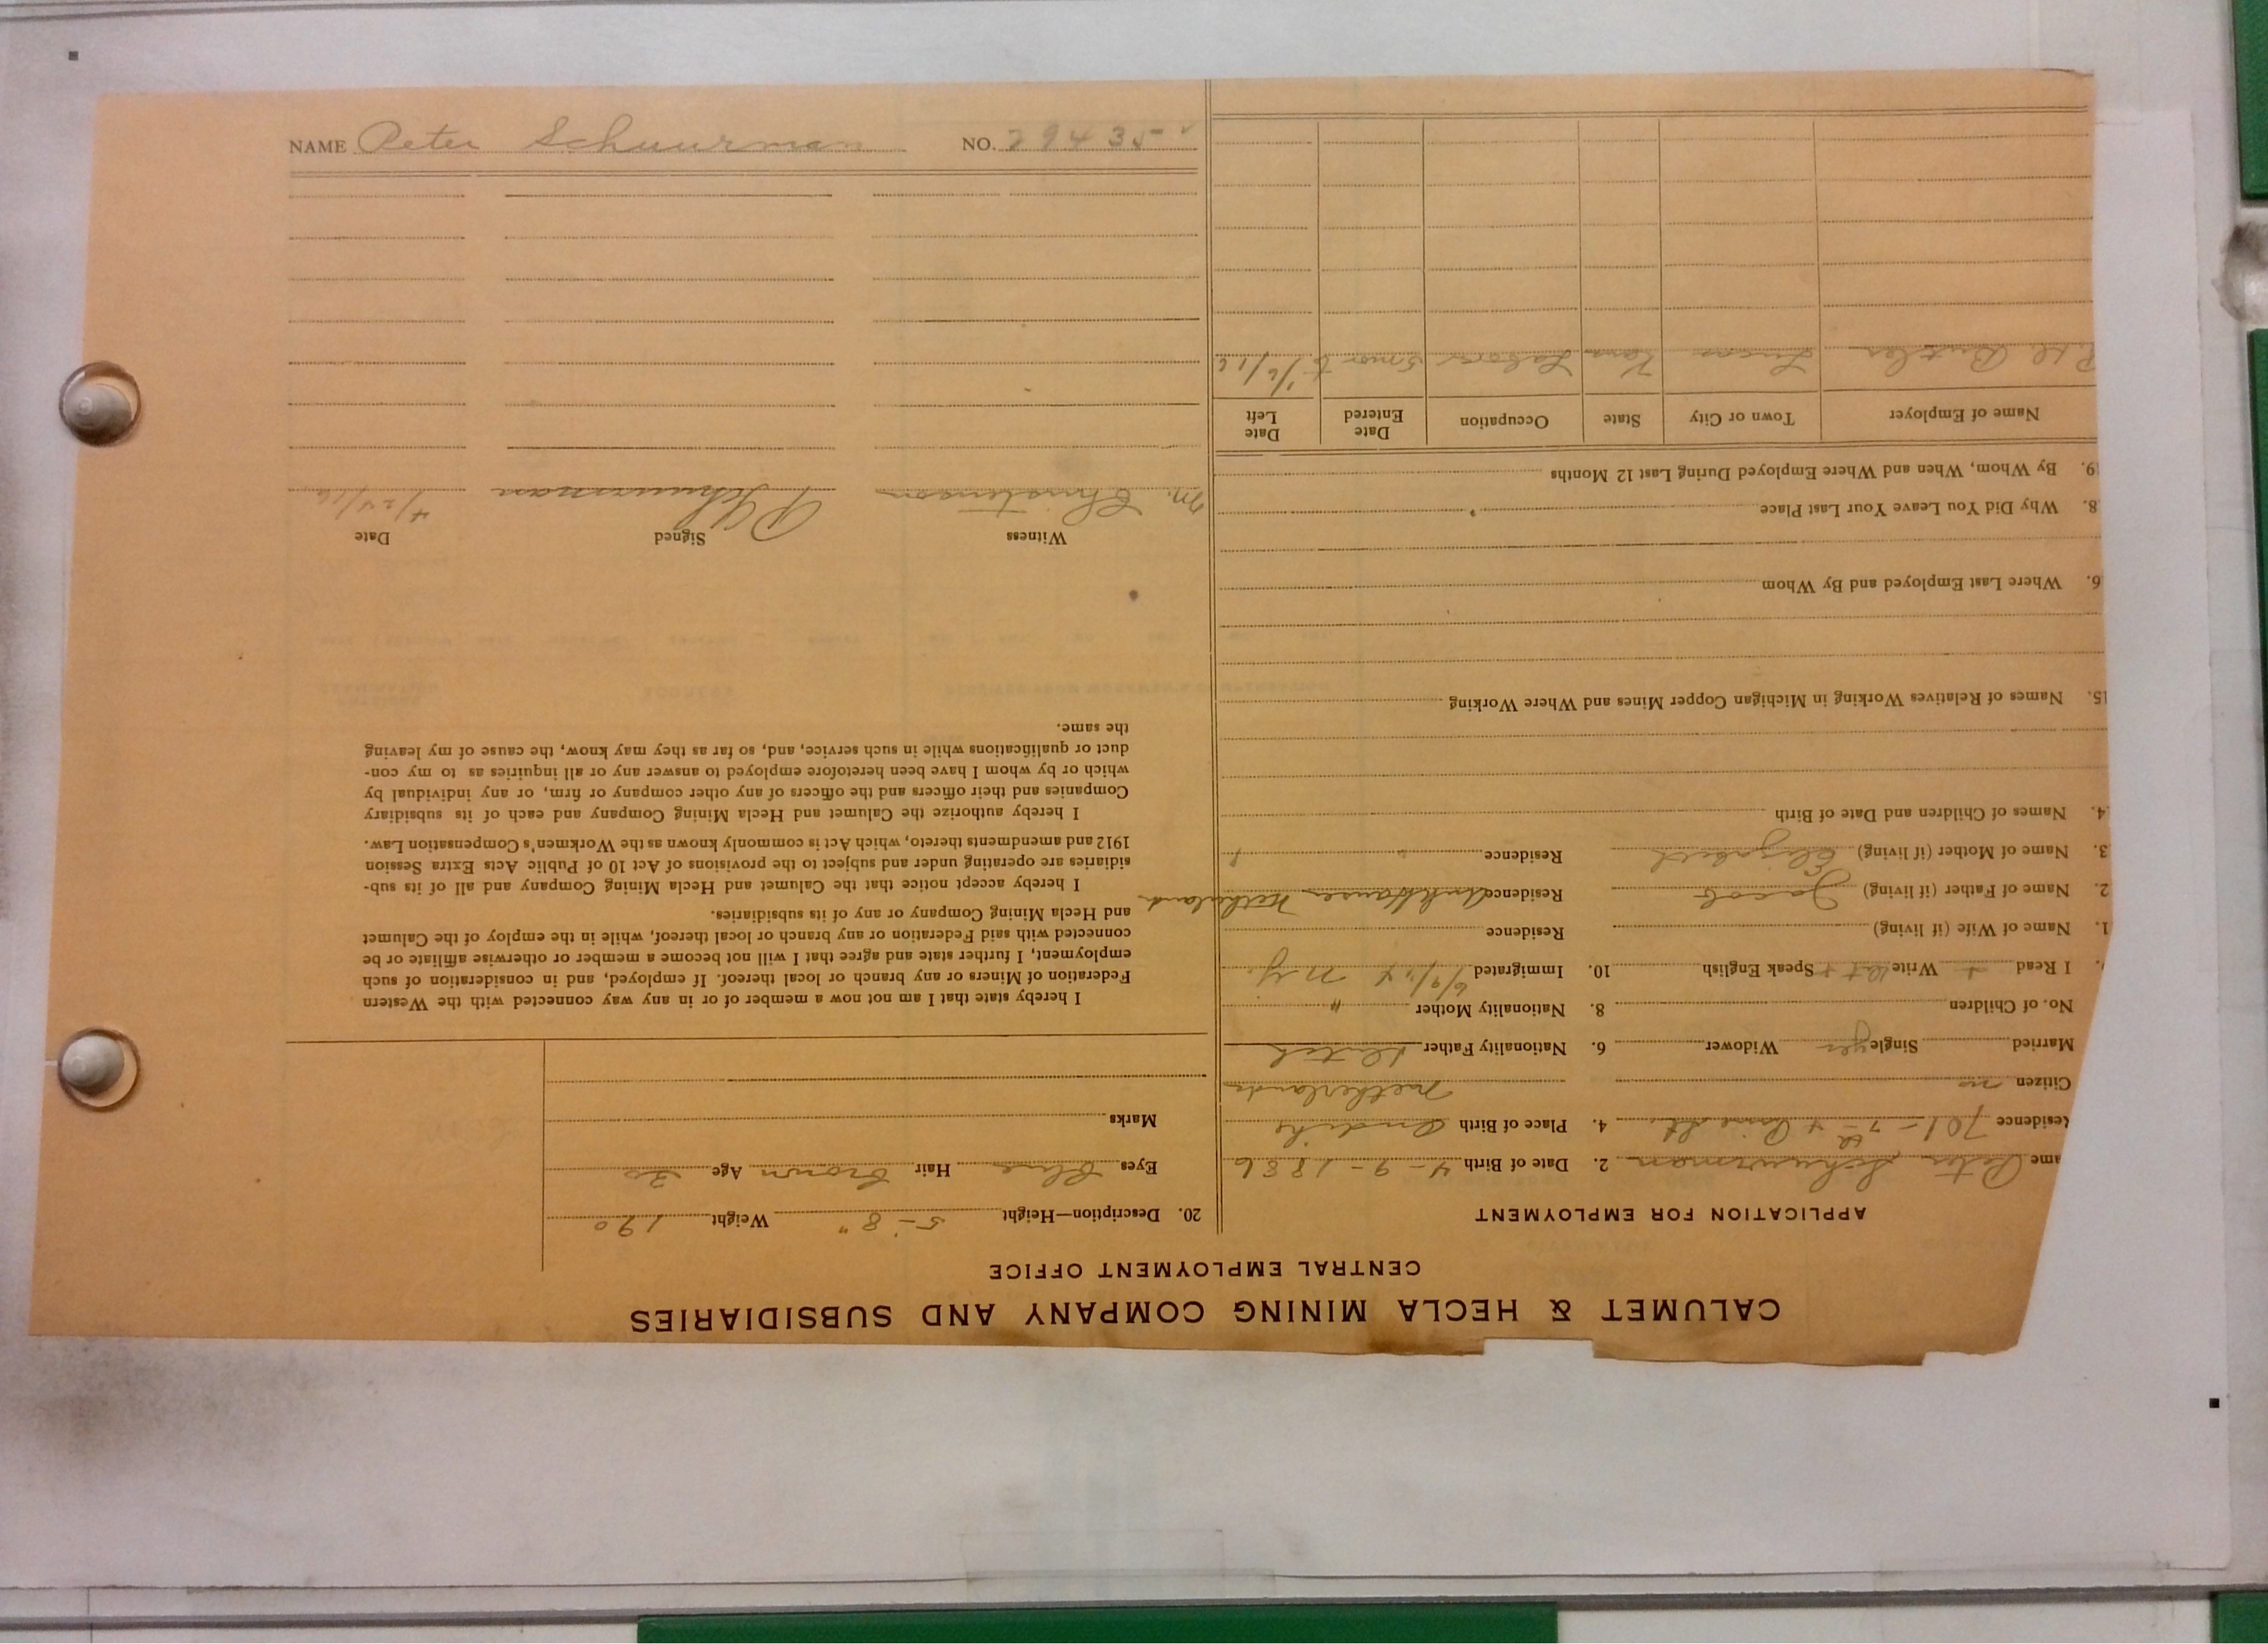 CALUMET & HECLA MINING COMPANY AND SUBSIDIARIES
CENTRAL EMPLOYMENT OFFICE
APPLICATION FOR EMPLOYMENT
ame Peter Schuurman 2. Date of Birth 4-9-1886
Residence 701-7th & Pine St. 4. Place of Birth Andijk
Citizen no Netherlands
Married Single yes Widower 6. Nationality Father Dutch
No. of Children 8. Nationality Mother "
I Read Write Speak English 10. Immigrated N.Y.
1. Name of Wife (if living) Residence
2. Name of Father (if living) Jacob Residence Netherlands
3. Name of Mother (if living) Elizabeth Residence "
4. Names of Children and Date of Birth
15. Names of Relatives Working in Michigan Copper Mines and Where Working
6. Where Last Employed and By Whom
8. Why Did You Leave Your Last Place
9. By Whom, When and Where Employed During Last 12 Months
Name of Employer Town or City State Occupation Date Entered Date Left
Butler Lucas Kans Labor
20. Description—Height 5-8" Weight 190
Eyes Blue Hair brown Age 30
Marks
I hereby state that I am not now a member of or in any way connected with the Western
Federation of Miners or any branch or local thereof. If employed, and in consideration of such
employment, I further state and agree that I will not become a member or otherwise affiliate or be
connected with said Federation or any branch or local thereof, while in the employ of the Calumet
and Hecla Mining Company or any of its subsidiaries.
I hereby accept notice that the Calumet and Hecla Mining Company and all of its sub-
sidiaries are operating under and subject to the provisions of Act 10 of Public Acts Extra Session
1912 and amendments thereto, which Act is commonly known as the Workmen's Compensation Law.
I hereby authorize the Calumet and Hecla Mining Company and each of its subsidiary
Companies and their officers and the officers of any other company or firm, or any individual by
which or by whom I have been heretofore employed to answer any or all inquiries as to my con-
duct or qualifications while in such service, and, so far as they may know, the cause of my leaving
the same.
Witness Signed Date
M. Christenson P Schuurman 4/24/16
NAME Peter Schuurman NO. 29435